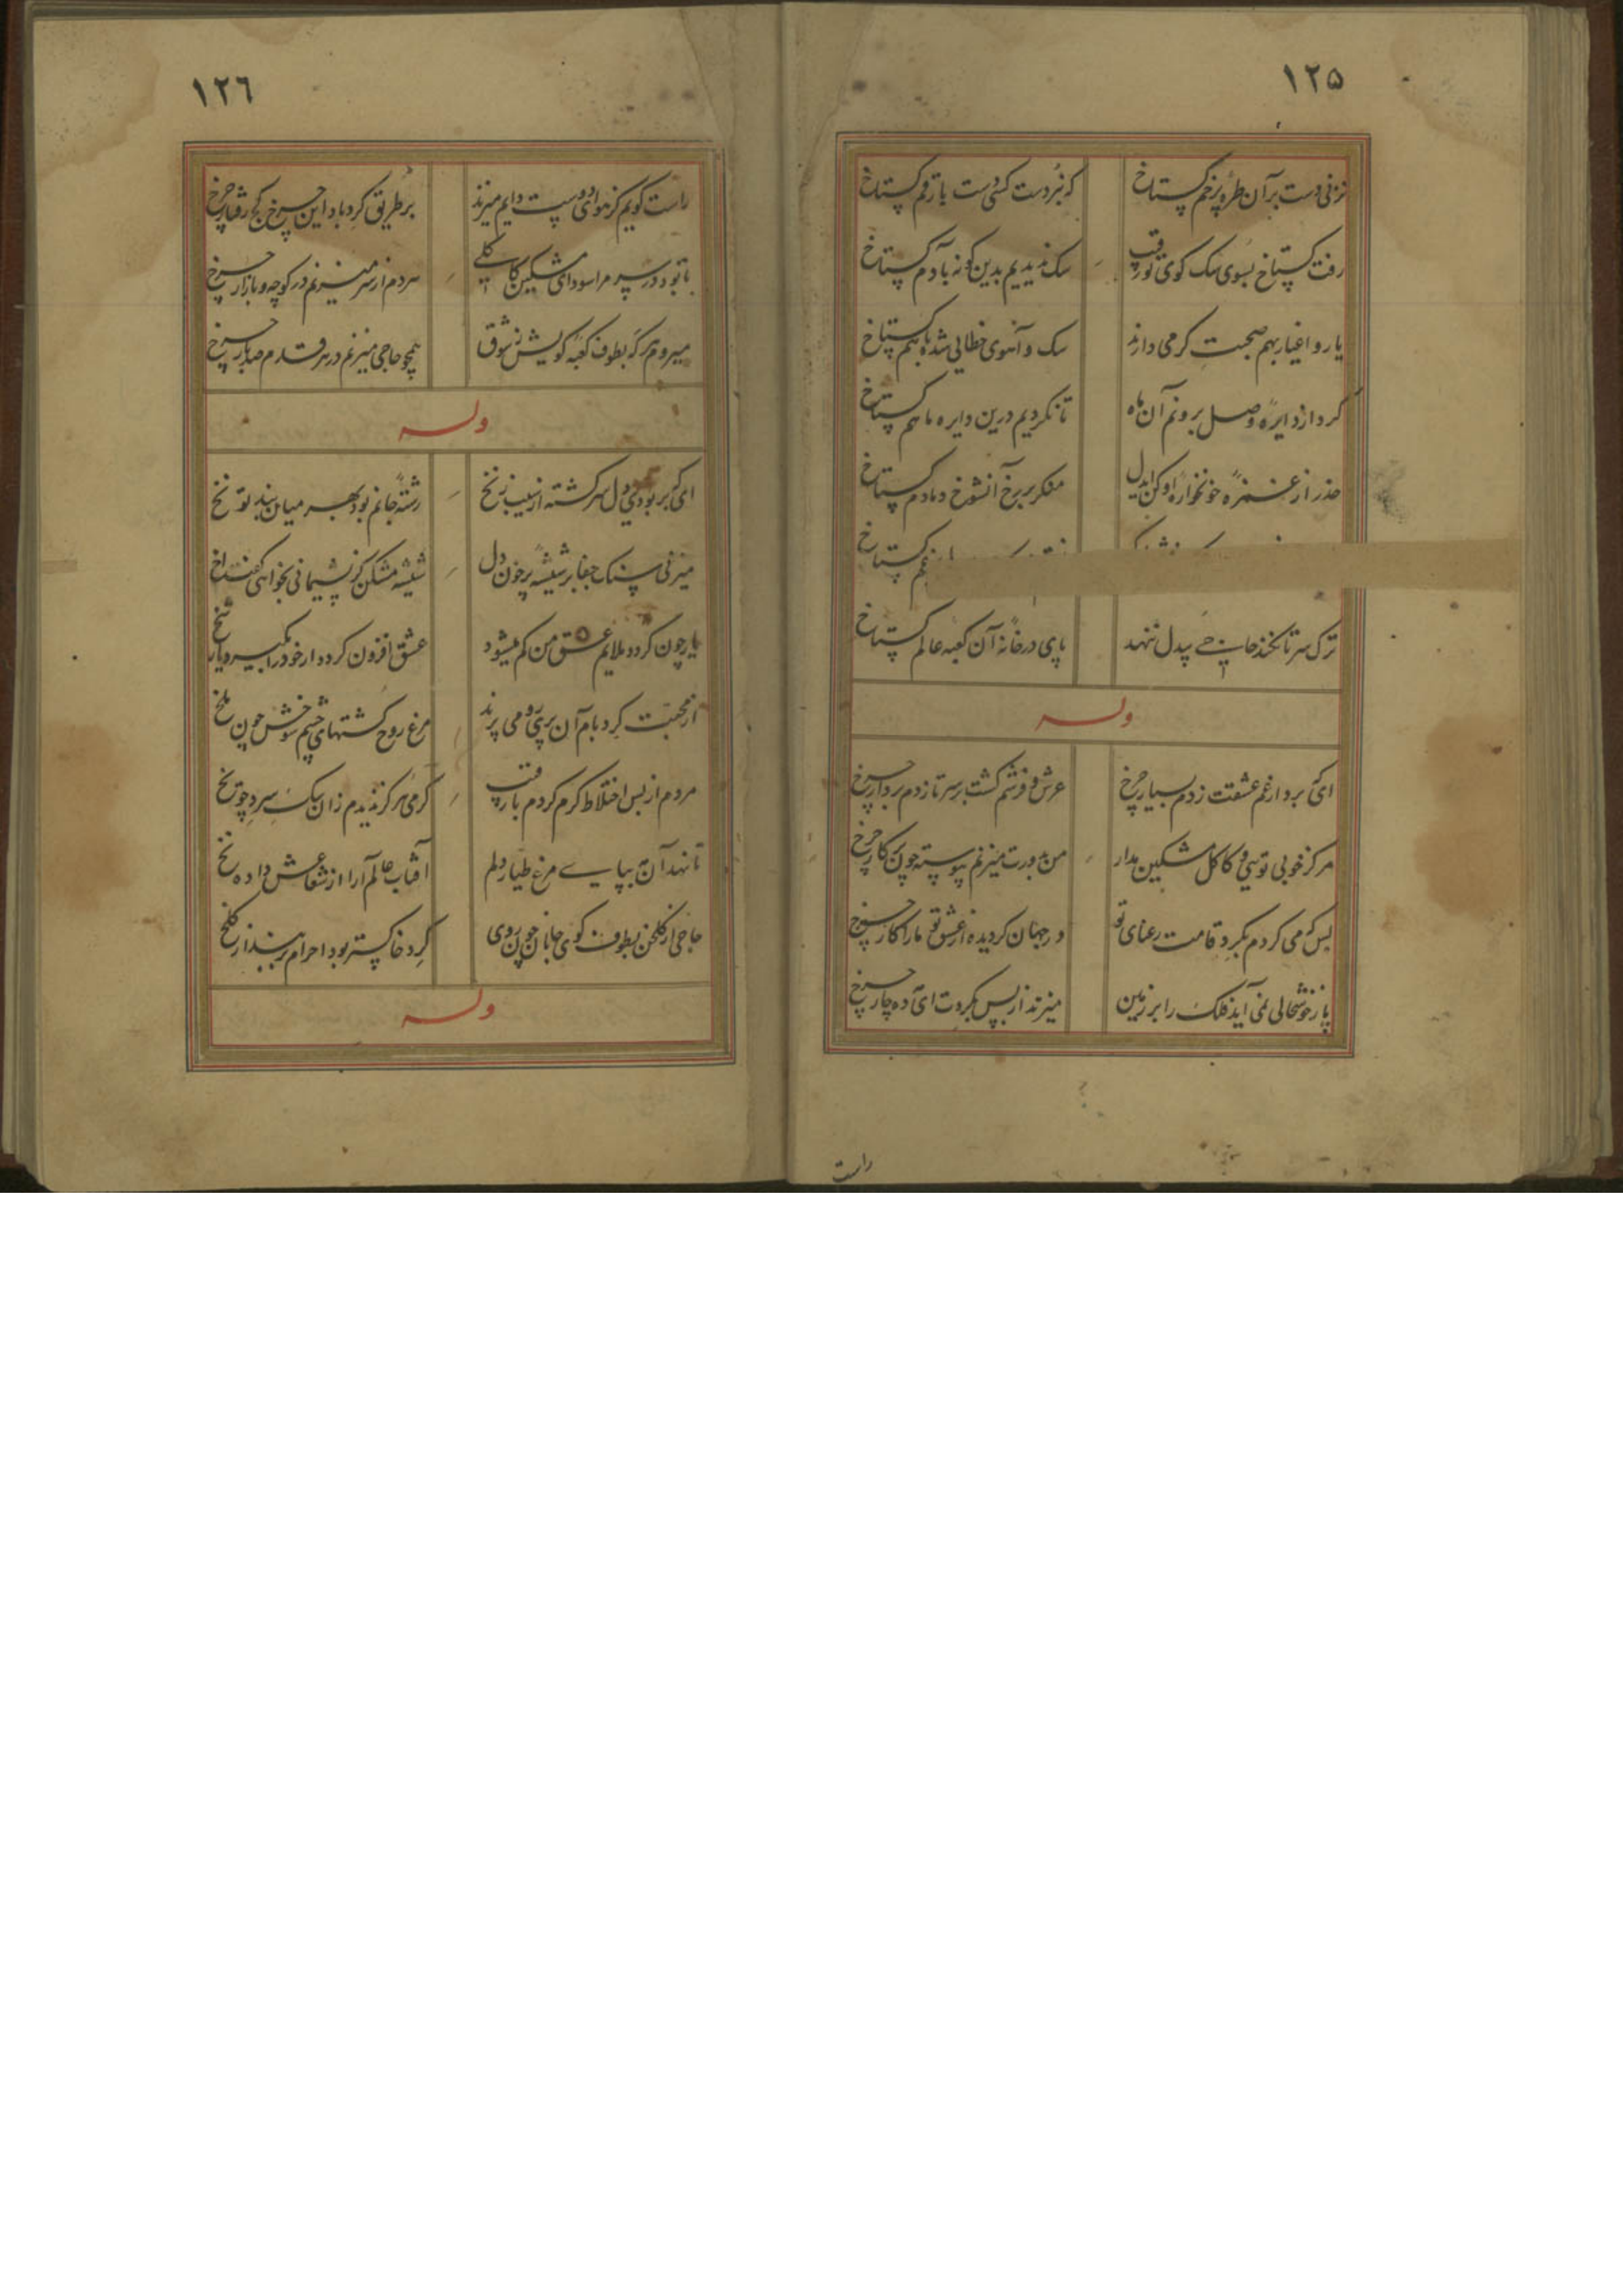 ١٢۵
نزنی دست بر آن طره پرخم کستاخ
که نبردست کسی دست بارقم کستاخ
رفت کستاخ بسوی سک کوی تو رقیب
سک ندیدیم بدین کونه بآدم کستاخ
یار و اغیار بهم صحبت کرمی دارند
سک و آهوی خطایی شده باهم کستاخ
کرد از دایرهٔ وصل برونم آن ماه
تا نکردیم درین دایره ما هم کستاخ
حذر از غمزهٔ خونخوارهٔ او کن ایدل
منکر بر رخ آنشوخ دمادم کستاخ
کستاخ
ترک سر تا نکند حاجی بیدل ننهد
پای در خانهٔ آن کعبه عالم کستاخ
وله
ای که بردار غم عشقت زدم بسیار چرخ
عرش و فرشم کشت بر سر تا زدم بردار چرخ
مرکز خوبی تویی و کاکل مشکین مدار
من بدورت میزنم پیوسته چون پرکار چرخ
بس که می کردم بکرد قامت رعنای تو
در جهان کردیده از عشق تو مارا کار چرخ
پا ز خوشحالی نمی آید فلک را بر زمین
میزند از بس بکردت ای مه ده چار چرخ
راست
١٢٦
راست کویم کز هوای دوست دایم میزند
بر طریق کردباد این چرخ کج رفتار چرخ
تا بود در سر مرا سودای مشکین کاکلی
هر دم از سر میزنم در کوچه و بازار چرخ
میروم هر که بطوف کعبه کویش ز شوق
همچو حاجی میزنم در هر قدم صد بار چرخ
وله
ای که بربودی دل سرکشته از سیب زنخ
رشتهٔ جانم بود بهر میان بند تو نخ
میزنی سنک جفا بر شیشهٔ پرخون دل
شیشه مشکن کز پشیمانی بخواهی کفت اخ
یار چون کردد ملایم عشق من کم میشود
عشق افزون کردد ار خود را بکیرد یار شخ
از محبت کرد بام آن پری رو می پرند
مرغ روح کشتهای چشم شوخش چون ملخ
مردم از بس اختلاط کرم کردم با رقیب
کرمی هرکز ندیدم زان سک سرد چو یخ
تا نهد آن مه بپای مرغ طیار دلم
آفتاب عالم آرا از شعاعش داده نخ
حاجی از کلخن بطوف کوی جانان چون روی
کرد خاکستر بود احرام بربند از کلخ
وله